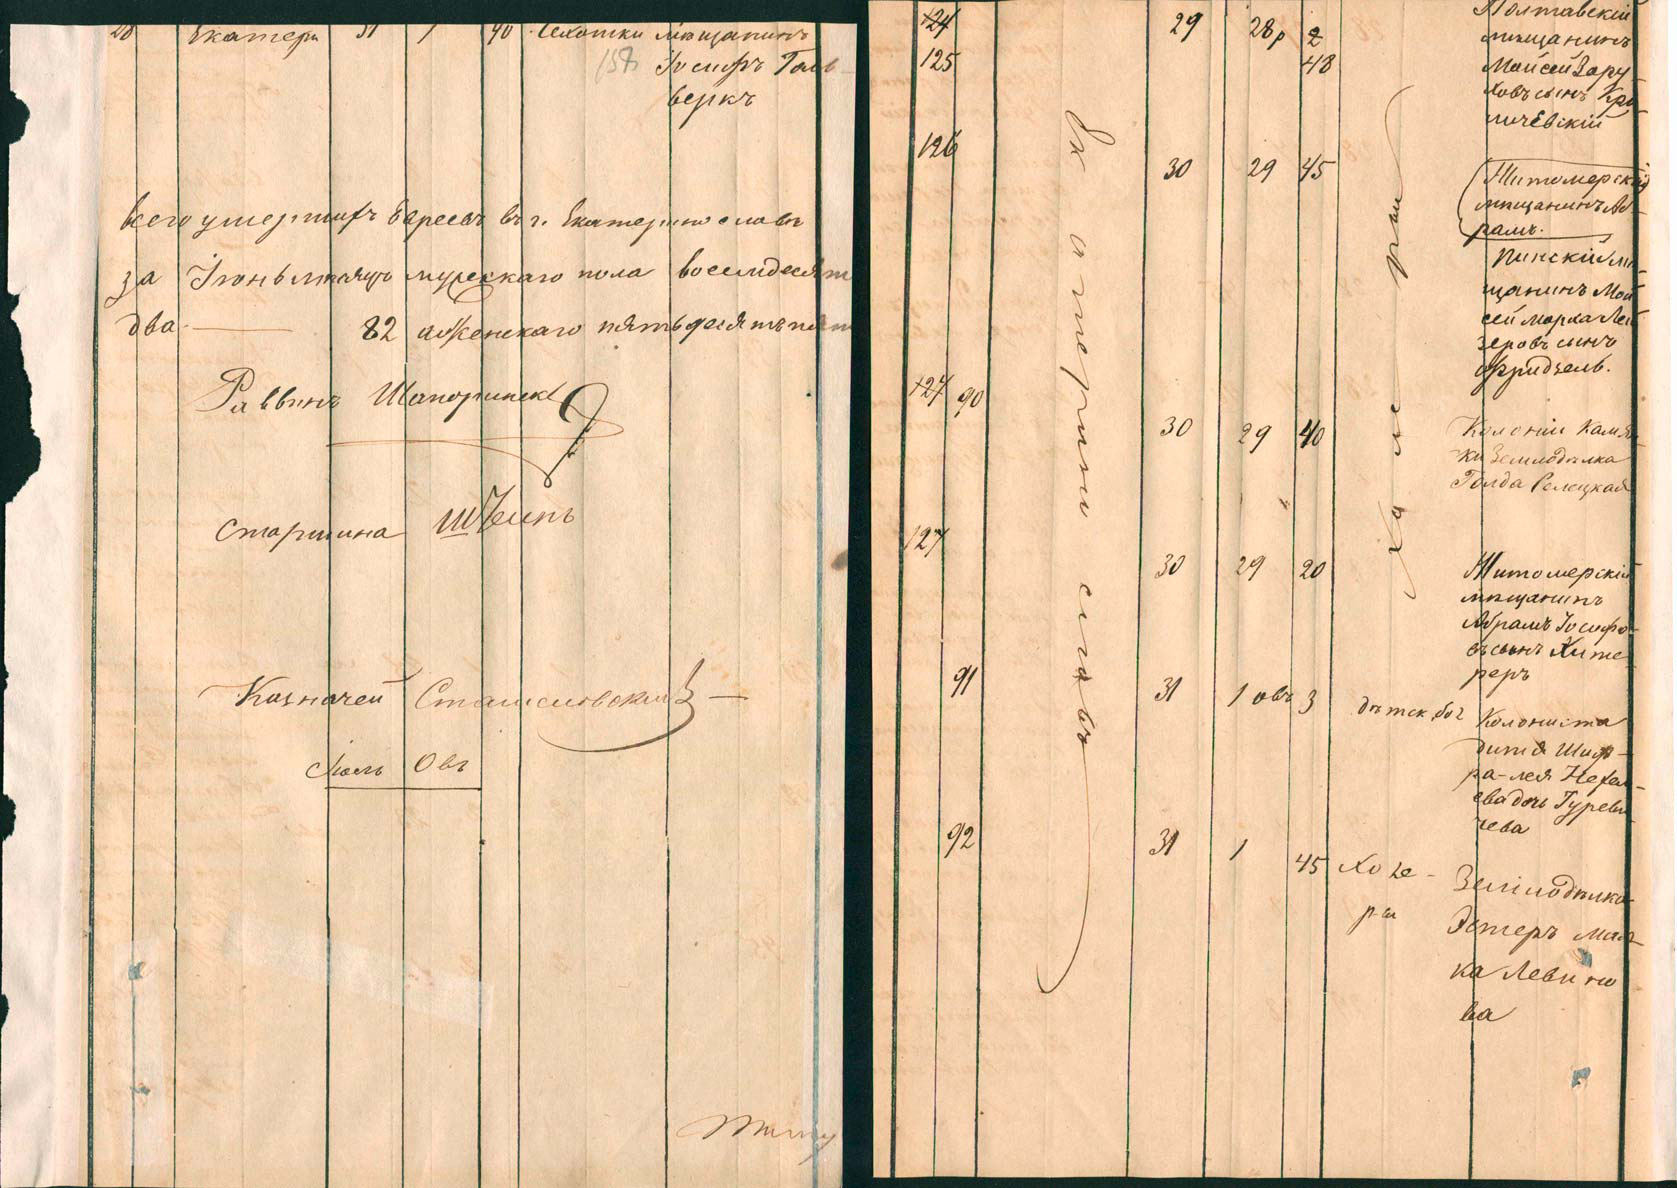 28 Екатери 31 1 40 Чахотки мѣщанинъ
158 Іосифъ Галь
веркъ
Всего умершихъ Евреевъ въ г. Екатеринославѣ
за Іюнь мѣсяцъ мужскаго пола восемдесят
два 82 а женскаго пятьдесятъ пят
Раввинъ Шапоринск
Старшина Штейнъ
Казначей Станиславскій
Іюль Овъ
124 29 28 р 2 Полтавскій
мѣщанинъ
125 48 Мойсей Зору
ховъ сынъ Кри
ничевскій
126 30 29 45 Житомерскій
мѣщанинъ Аб
рамъ.
Пинскій мѣ
щанинъ Мой
сей Морха Лей
зеровъ сынъ
Фридзель.
127 90 30 29 40 Колоніи Камян
ки Земледѣлка
Голда Релецкая
127 30 29 20 Житомерскій
мѣщанинъ
Абрамъ Іосифо
въ сынъ Хите
реръ
91 31 1 овъ 3 дѣтск. бол Колониста
дитя Шифъ
ра-лея Нехем
ева дочь Гуреви
чева
92 31 1 45 Холе-
ра
Земледѣлка
Эстеръ Мал
ка Левино
ва
Екатеринославъ
Холера